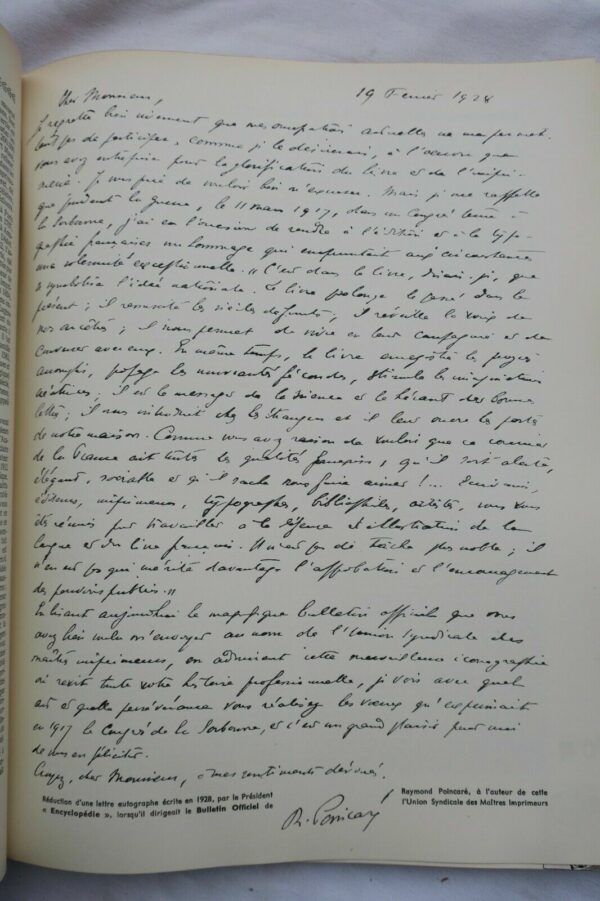 19 Février 1928
Cher Monsieur,
Je regrette bien vivement que mes occupations actuelles ne me permet-
tent pas de participer, comme je le désirerais, à l'oeuvre que
vous avez entreprise pour la glorification du livre et de l'impri-
merie. Je vous prie de vouloir bien m'excuser. Mais je me rappelle
que pendant la guerre, le 11 mars 1917, dans un Congrès tenu à
la Sorbonne, j'ai eu l'occasion de rendre à l'édition et à la typo-
graphie françaises un hommage qui empruntait aux circonstances
une solennité exceptionnelle. "C'est dans le livre, disais-je, que
se symbolise l'idée nationale. Le livre prolonge le passé dans le
présent ; il ressuscite les siècles défunts, il réveille la voix de
nos ancêtres ; il nous permet de vivre en leur compagnie et de
converser avec eux. En même temps, le livre enregistre les progrès
accomplis, propage les nouveautés fécondes, stimule les imaginations
créatrices ; il est le messager de la science et le héraut des bonnes
lettres ; il nous introduit chez les étrangers et il leur ouvre les portes
de notre maison. Comme vous avez raison de vouloir que ce courrier
de la France ait toutes les qualités françaises, qu'il soit alerte,
élégant, sociable et qu'il sache nous faire aimer !... Ecrivains,
éditeurs, imprimeurs, typographes, bibliophiles, artistes, vous vous
êtes réunis pour travailler à la défense et illustration de la
langue et du livre français. Il n'est pas de tâche plus noble ; il
n'en est pas qui mérite davantage l'approbation et l'encouragement
des pouvoirs publics."
En lisant aujourd'hui le magnifique bulletin officiel que vous
avez bien voulu m'envoyer au nom de l'Union Syndicale des
maîtres imprimeurs, en admirant cette merveilleuse iconographie
où revit toute votre histoire professionnelle, je vois avec quel
art et quelle persévérance vous réalisez les voeux qu'exprimait
en 1917 le Congrès de la Sorbonne, et c'est un grand plaisir pour moi
de vous en féliciter.
Croyez, cher Monsieur, à mes sentiments dévoués.
R. Poincaré
Réduction d'une lettre autographe écrite en 1928, par le Président Raymond Poincaré, à l'auteur de cette
« Encyclopédie », lorsqu'il dirigeait le Bulletin Officiel de l'Union Syndicale des Maîtres Imprimeurs